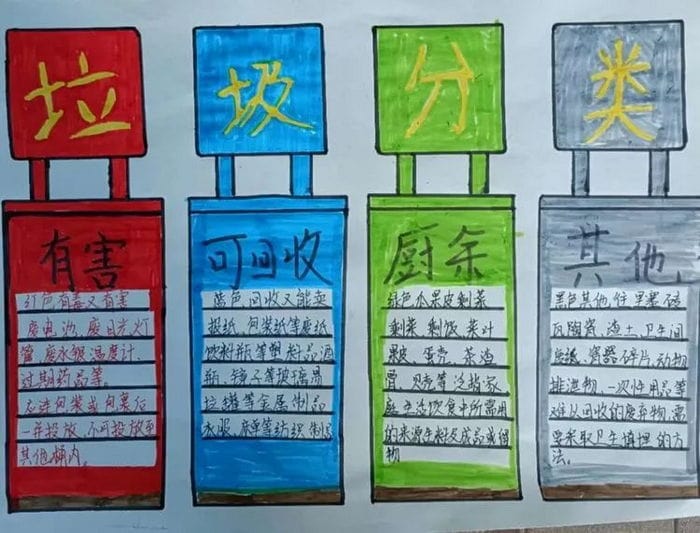 垃
圾
分
类
有害
红色有毒又有害
废电池、废日光灯
管、废水银温度计、
过期药品等。
应连包装或包裹后
一并投放，不可投放至
其他桶内。
可回收
蓝色回收又能卖
报纸、包装纸等废纸
饮料瓶等塑料品酒
瓶、镜子等玻璃易
拉罐等金属制品
衣服、床单等纺织制品
厨余
红色瓜果皮剩菜
剩菜、剩饭、菜叶
果皮、蛋壳、茶渣
骨、贝壳等泛指家
庭生活饮食中所需用
的来源生料及成品或
物
其他
黑色其他,往里塞砖
瓦陶瓷、渣土、卫生间
废纸、瓷器碎片、动物
排泄物、一次性用品等
难从回收的废弃物,需
要采取卫生填埋的方
法。